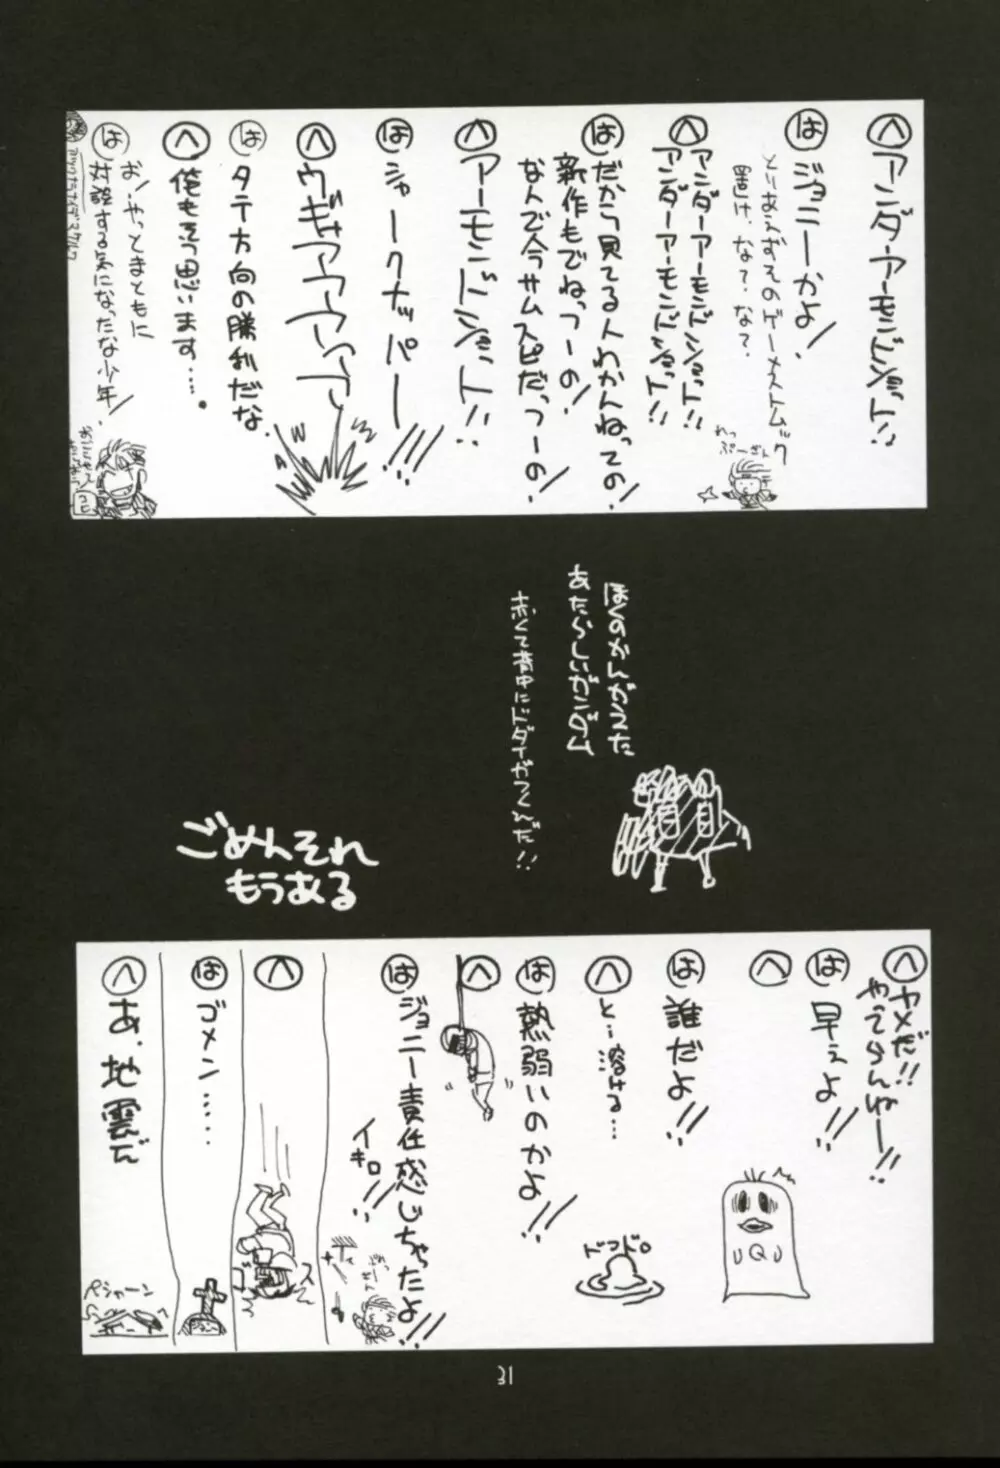 へ アンダーアーモンドショット!!
は ジョニーかよ!
とりあえずそのゲーメストムック
置け、な?な?
れっ
ぷーざん
へ アンダーアーモンドショット!!
アンダーアーモンドショット!!
は だから見てる人わかんねっての!
新作もでねっつーの!
なんで今サムスピだっつーの!
へ アーモンドショット!!
は シャークナッパー!!!
へ ウギャアアアアア
は タテ方向の勝利だな
へ 俺もそう思います……。
お!やっとまともに
は 対談する気になったな少年!
ぼくのかんがえた
あたらしいガンダム
赤くて背中にドダイがつくんだ!!
ごめんそれ
もうある
へ ヤメだ!!
やってらんねー!!
は 早ぇよ!!
へ
Q
は 誰だよ!!
へ と…溶ける…
ドロドロ
は 熱弱いのかよ!!
へ
は ジョニー責任感じちゃったよ!!
イキロ!!
へ
は ゴメン……
へ あ、地震だ
ペシャーン
31